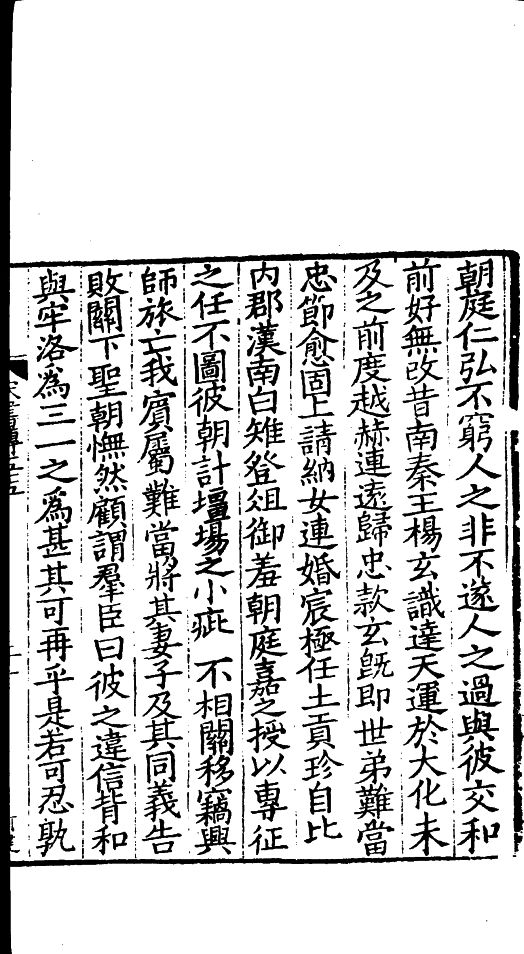 朝庭仁弘不窮人之非不遂人之過與彼交和
前好無改昔南秦王楊玄識達天運於大化未
及之前度越赫連遠歸忠款玄旣即世弟難當
忠節愈固上請納女連婚宸極任土貢珍自比
内郡漢南白雉登俎御羞朝庭嘉之授以專征
之任不圖彼朝計壃場之小疵不相關移竊興
師旅亡我賓屬難當將其妻子及其同義告
敗關下聖朝憮然顧謂羣臣曰彼之違信背和
與牢洛爲三一之爲甚其可再乎是若可忍孰